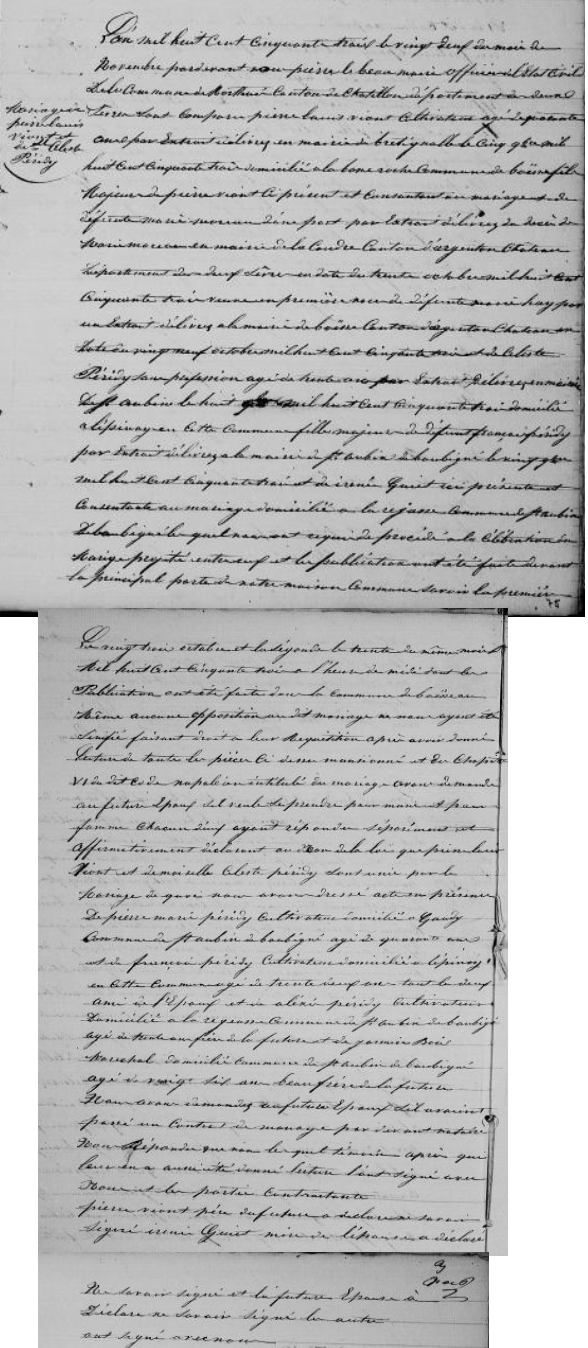 L'an mil huit Cent Cinquante trois le vingt deux du mois de
Novembre pardevant nous pierre le beau maire officier de l'Etat Civil
De la Commune de Rorthais Canton de Chatillon département de deux
Mariage de
pierre louis
Viont et
de Dlle Celeste
Péridy
Sevres Sont Comparu pierre louis viont Cultivateur agé de quarante
ans par Extrait délivrez en mairie de le Cinq mil
huit Cent Cinquante trois domicilié a la bone roche Commune de boësse fils
Majeur de pierre viont Ci présent et Consentant au mariage et de
défunte marie moreau d'une part par Extrait délivrez du décès de
marie moreau en mairie de la Coudre Canton d'argenton Chateau
Département des deux Sèvre en date du trente octobre mil huit Cent
Cinquante trois veuve en première noce de défunte marie hay par
un Extrait délivrez a la mairie de boësse Canton d'argenton Chateau en
Date du vingt neuf octobre mil huit Cent Cinquante trois et de Celeste
Péridy sans profession agé de trente ans par Extrait Délivrez en mairie
De St aubin le huit mil huit Cent Cinquante trois domicilié
a lépinay en Cette Commune fille majeure de défunt françois péridy
par Extrait délivrez a la mairie de St aubin de baubigné le vingt
mil huit Cent Cinquante trois et de irené Guiet ici présente et
Consentante au mariage domicilié a la Commune de St aubin
De baubigné le quel nous ont requis de procédé a la Célébration du
Mariage projeté entre eux et les publication ont été faite devant
la principal porte de notre maison Commune Savoir la première
78
Le vingt trois octobre et la ségonde le trente du même mois
Mil huit Cent Cinquante trois a l'heure de midi dont les
Publication ont été faite dans la Commune de boësse au
Même aucune opposition au dit mariage ne nous ayant été
Sinifié faisant droit a leur Requisition après avoir donné
Lecture de toute les pièces Ci dessu mansionné et du Chapitre
VI du dit Code napoléon intitulé du mariage avons demandé
au future Epoux s'il veule se prendre pour mari et pour
famme Chacun d'eux ayant répondu séparément et
affirmativement déclarant au Nom de la loi que pierre louis
Viont et demoiselle Celeste péridy sont unie par le
Mariage de quoi nous avons dressé acte en présence
De pierre marie péridy Cultivateur domicilié a
Commune de St aubin de baubigné agé de quarante ans
et de françois péridy Cultivateur domicilié a lépinay
en Cette Commune agé de trente deux ans tout les deux
ami de l'Epoux et de péridy Cultivateur
Domicilié a la Commune de St aubin de baubigé
agé de trente ans frère de la future et de Bois
Marechal domicilié Commune de St aubin de baubigné
agé de vingt six ans beau frère de la future
Nous avons demandez au future Epoux s'il avaient
passé un Contrat de mariage par devant notaire
Nous Répondu que non le quel témoin après qui
leur en a aussi été donné lecture l'ont signé avec
Nous et les partie Contractante
pierre viont père du future a déclaré ne savoir
signé irené Guiet mère de l'épouse a déclaré
Ne savoir signé et la future Epouse à
Déclaré ne savoir signé les autre
ont signé avec nous